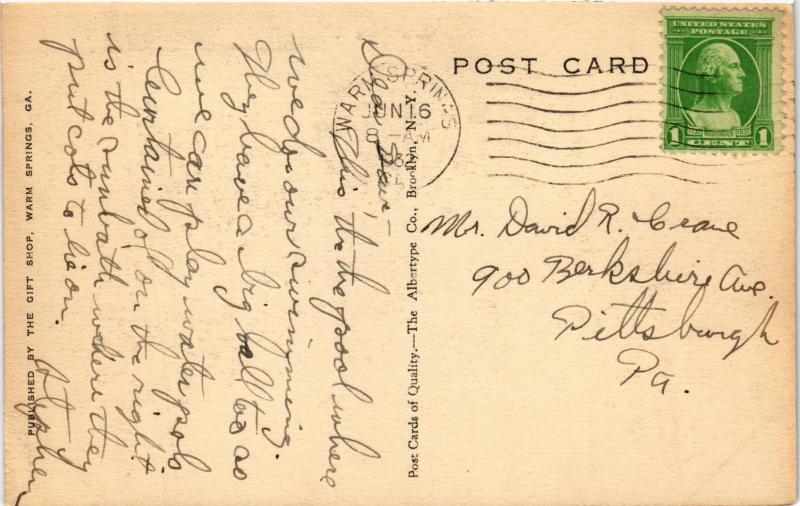 POST CARD
UNITED STATES
POSTAGE
1 CENT 1
WARM SPRINGS
JUN 16
8 - AM
1932
Dear Dave, -
This the the pool where
we do our swimming.
They have a big ball too so
we can play water polo
Curtained off on the right
is the sunbath where they
put cots to lie on.
Stephen
Mr. David R. Crane
900 Berkshire Ave.
Pittsburgh
Pa.
Post Cards of Quality.—The Albertype Co., Brooklyn, N. Y.
PUBLISHED BY THE GIFT SHOP, WARM SPRINGS, GA.